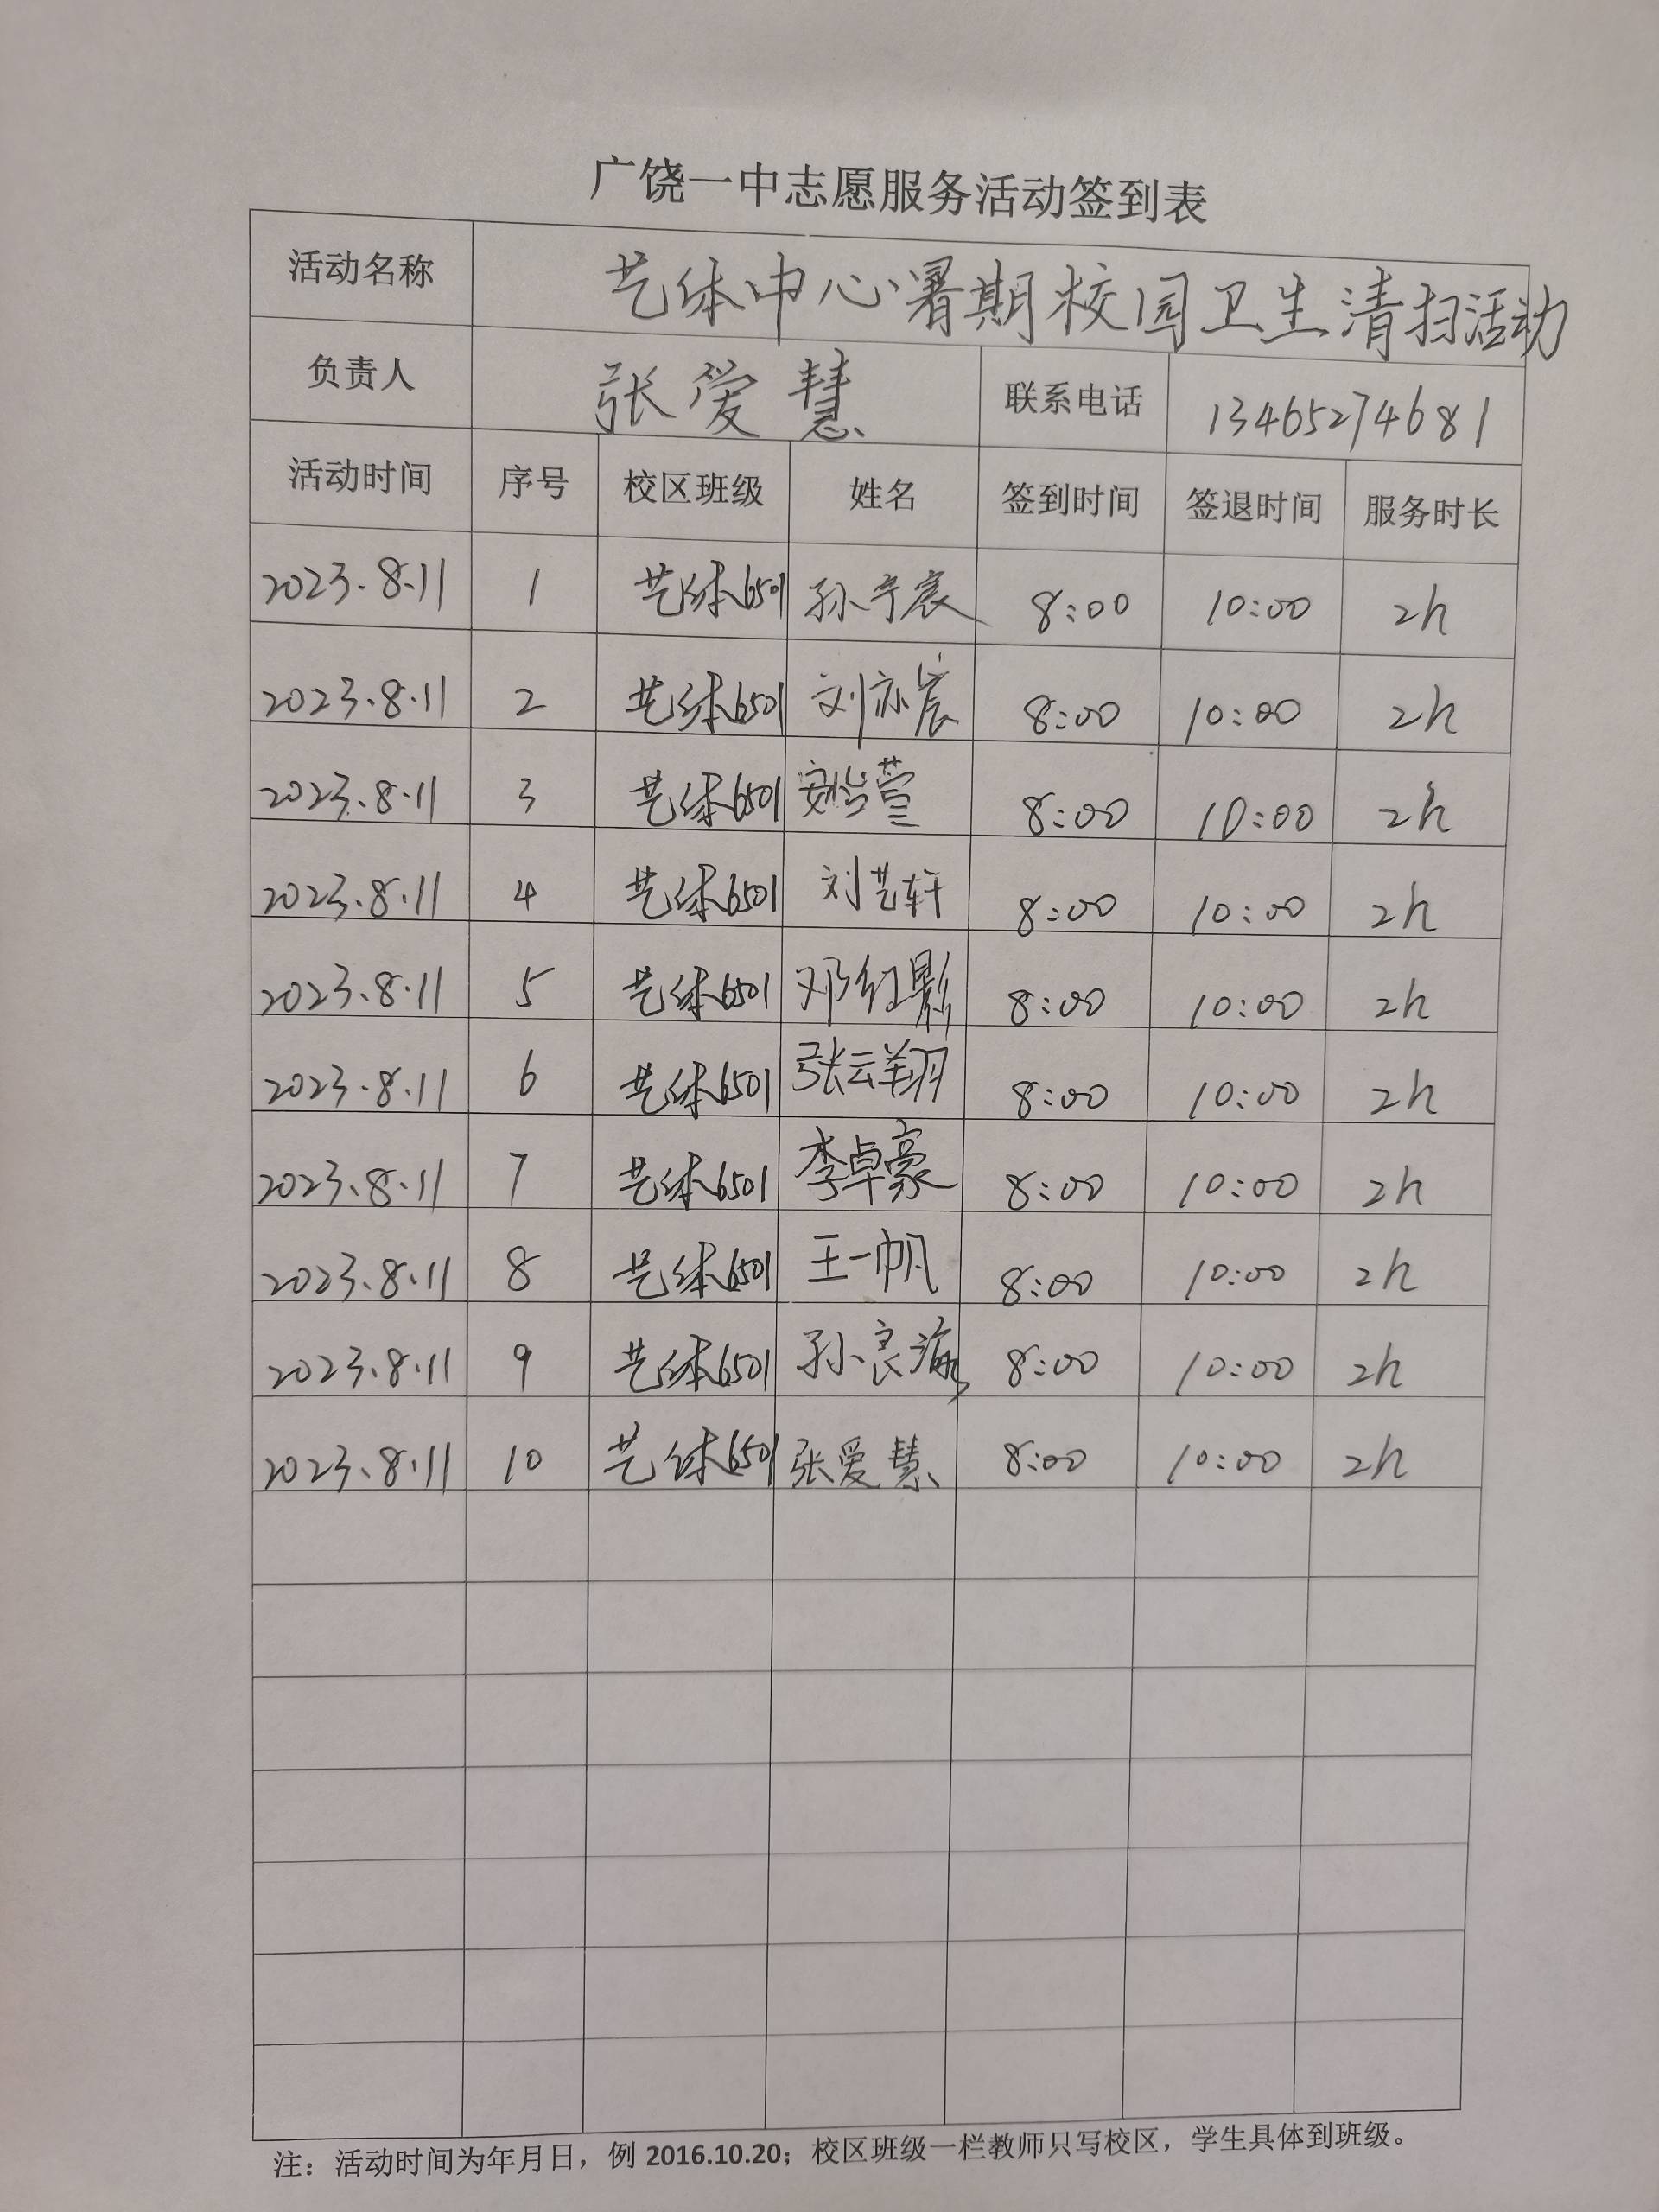 广饶一中志愿服务活动签到表
活动名称 艺体中心暑期校园卫生清扫活动
负责人 张爱慧 联系电话 13465274681
活动时间 序号 校区班级 姓名 签到时间 签退时间 服务时长
2023.8.11 1 艺体6501 孙宇宸 8:00 10:00 2h
2023.8.11 2 艺体6501 刘亦宸 8:00 10:00 2h
2023.8.11 3 艺体6501 安怡萱 8:00 10:00 2h
2023.8.11 4 艺体6501 刘艺轩 8:00 10:00 2h
2023.8.11 5 艺体6501 邓红影 8:00 10:00 2h
2023.8.11 6 艺体6501 张云翔 8:00 10:00 2h
2023.8.11 7 艺体6501 李卓豪 8:00 10:00 2h
2023.8.11 8 艺体6501 王一帆 8:00 10:00 2h
2023.8.11 9 艺体6501 孙良海 8:00 10:00 2h
2023.8.11 10 艺体6501 张爱慧 8:00 10:00 2h
注：活动时间为年月日，例 2016.10.20；校区班级一栏教师只写校区，学生具体到班级。